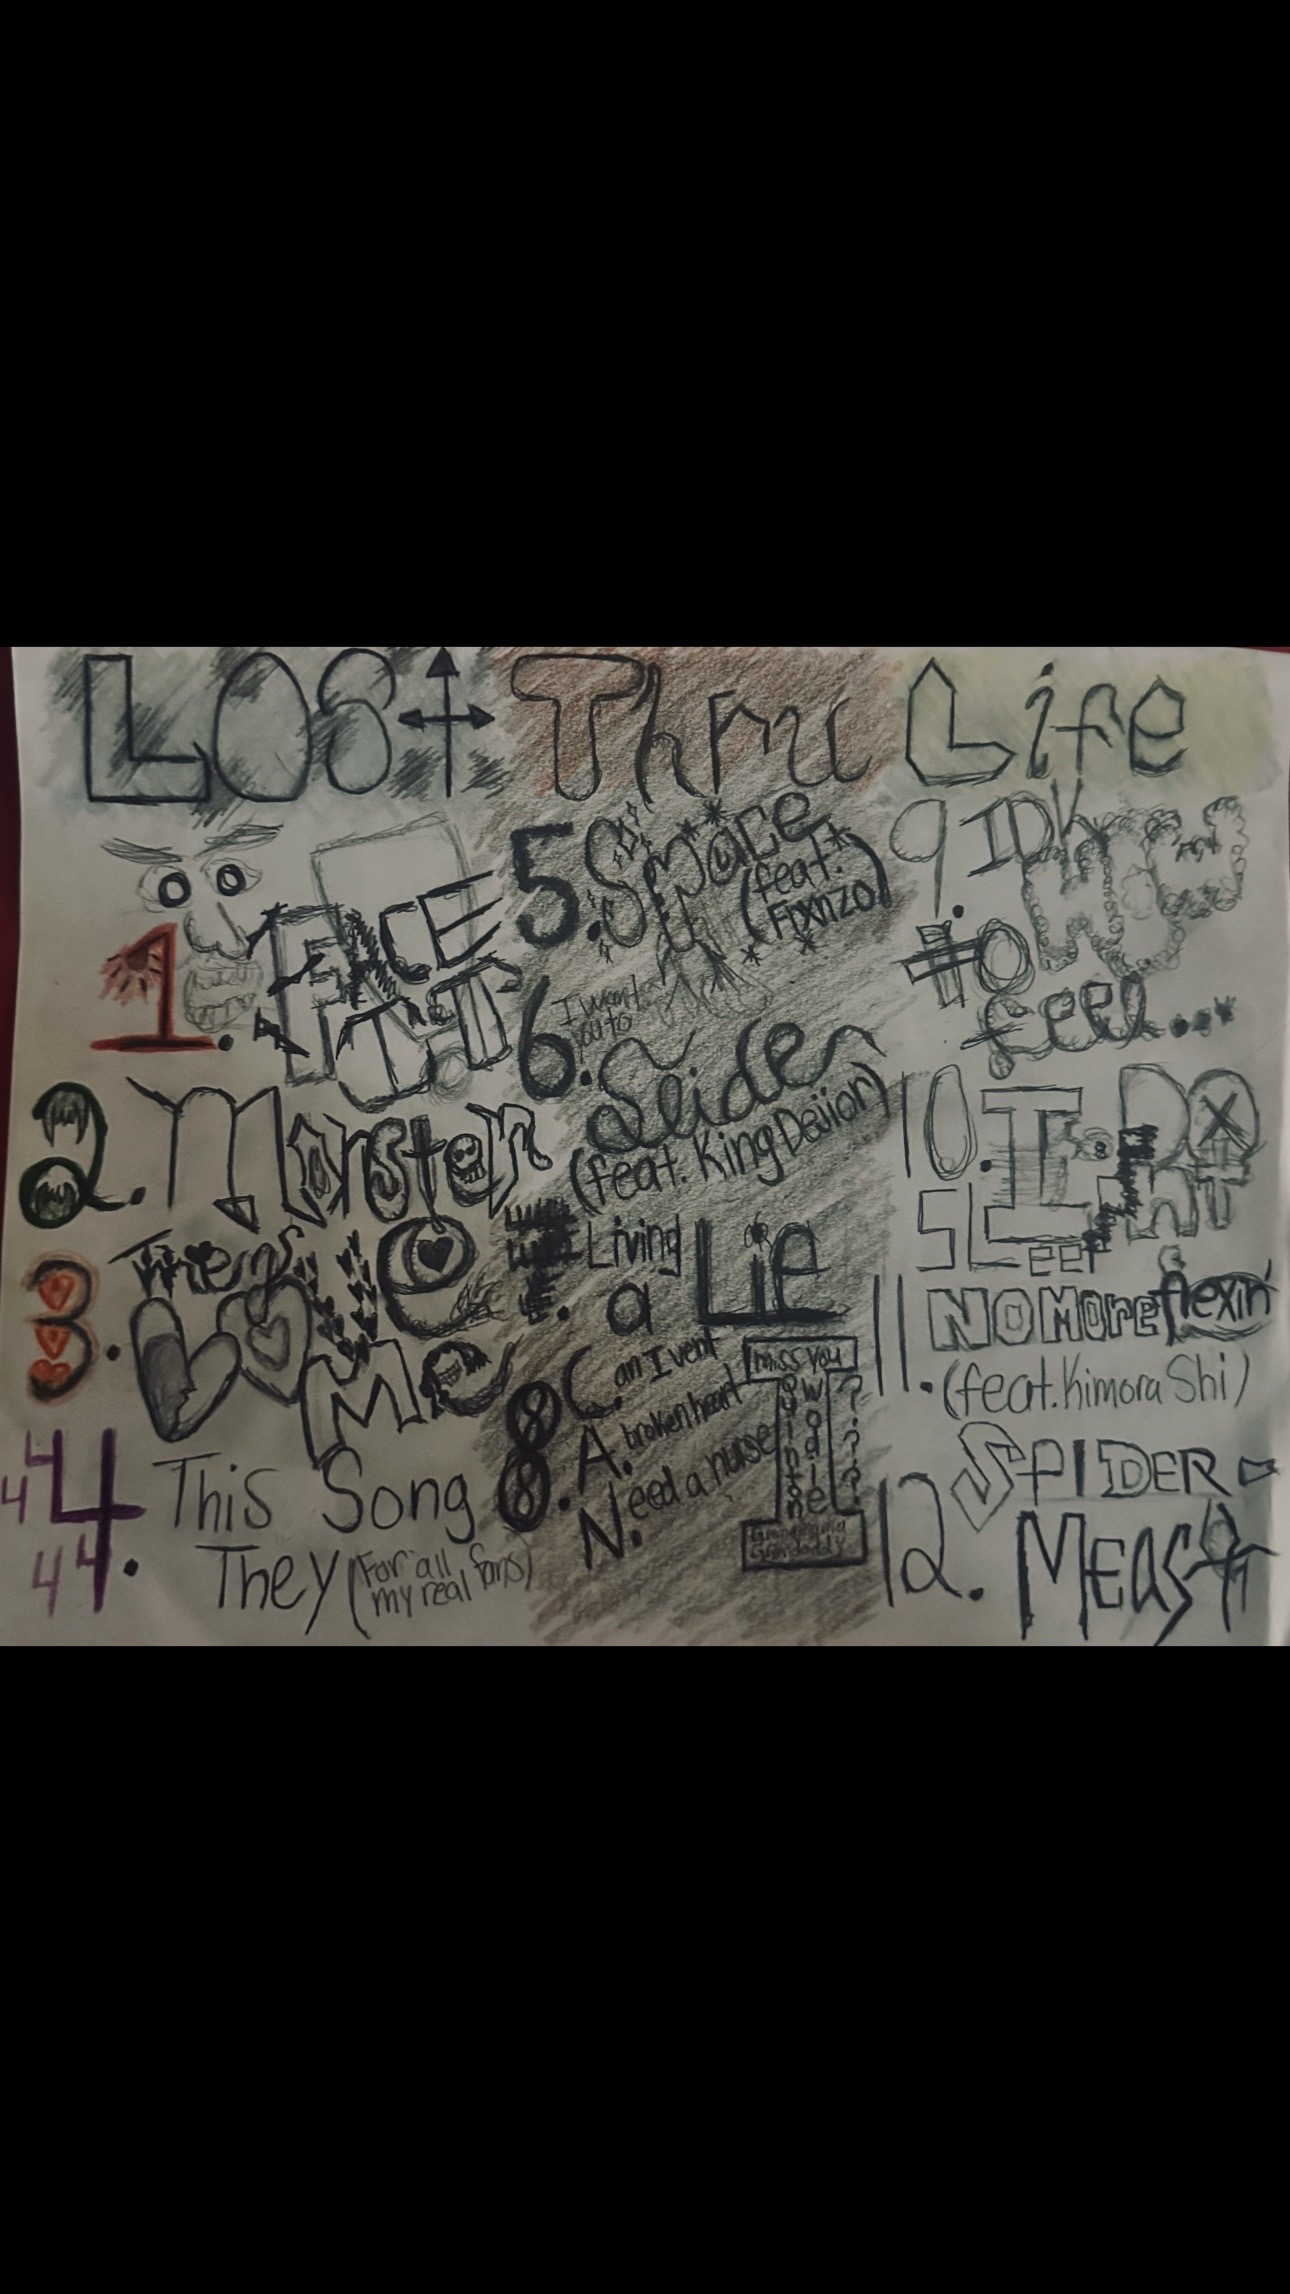 LOST Thru Life
1. FACE
IT
2. Monster
3. They
LOVE
Me
4 4 4 4 4.
This Song
They (For all
my real fans)
5. Space
(feat.
Frxnzo)
6. I want
you to
(feat. King Dejion)
Living
a LiE
8. Can I vent
A. broken heart
N. eed a nurse
I
miss you
???
9. IDK
HOW
to
feel...
10. I
SLeep
11. NO More flexin'
(feat. Kimora Shi)
12. SPIDER-
MEAStr